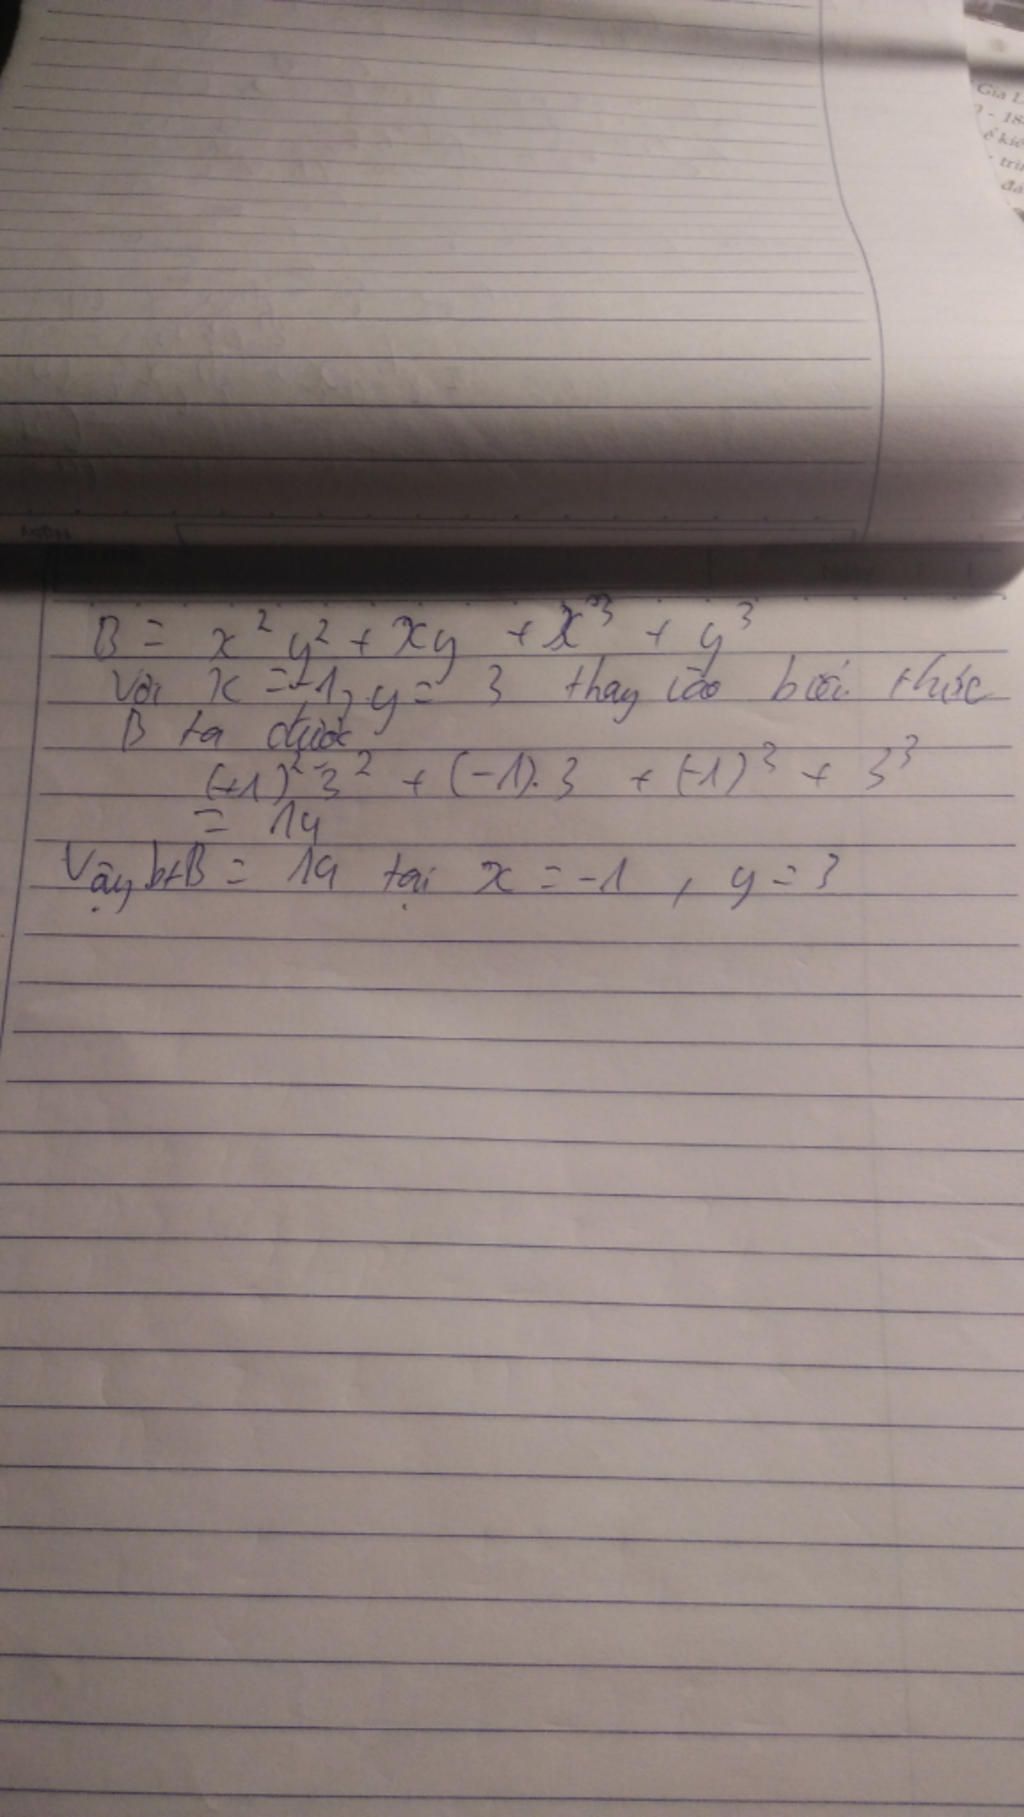 Gia L
- 18
ể kiể
trìn
đá
Ngày
B = x² y² + xy + x³ + y³
Với x = -1, y = 3 thay vào biểu thức
B ta được
(-1)² 3² + (-1).3 + (-1)³ + 3³
= 14
Vậy bt B = 14 tại x = -1 , y = 3